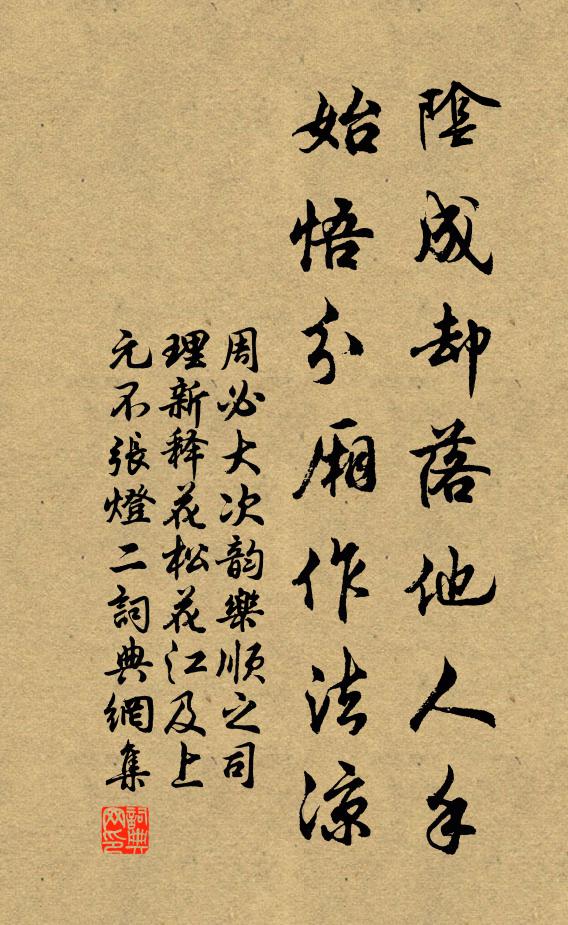 陰成却落他人手
始悟分厢作法涼
周必大次韵樂順之司
理新释花松花江及上
元不張燈二詞典網集
詞典網印